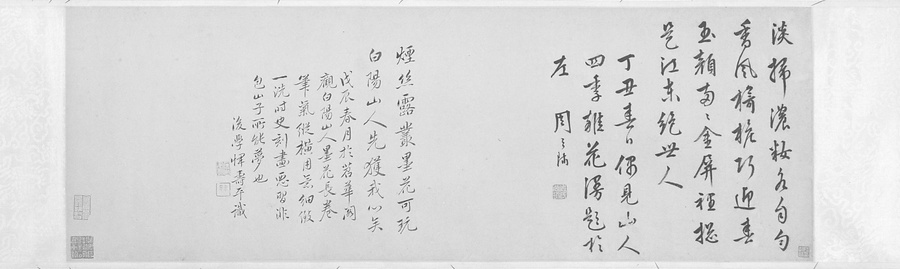 淡掃濃妝各自勻
香風旖旎巧迎春
玉顏兩〻金屏裡總
是江東絕世人
丁丑春日偶見山人
四季雜花漫題於
左 周之
煙絲露叢墨花可玩
白陽山人先獲我心矣
戊辰春月於苕華閣
觀白陽山人墨花長卷
筆氣縱橫用無細假
一洗時史刻畫惡習非
包山子所能夢也
後學惲壽平識